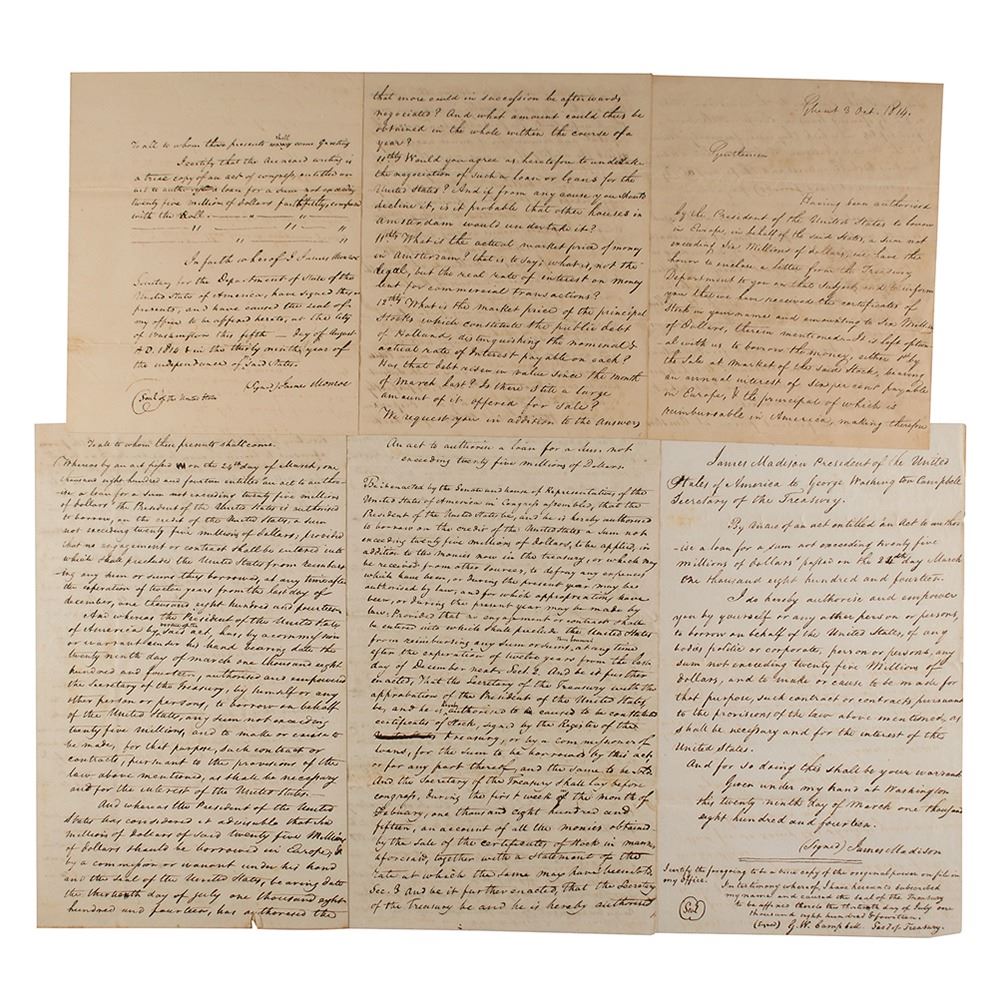 To all to whom these presents shall come Greeting
I certify that the annexed writing is
a true copy of an act of congress, entitled an
act to authorise a loan for a sum not exceeding
twenty five millions of dollars faithfully compared
with the Roll. — " — " — "
" " "
In faith whereof I James Monroe
Secretary for the Department of State of the
United States of America, have signed these
presents, and have caused the seal of
my office to be affixed hereto, at the City
of Washington this fifth — day of August
A.D. 1814 & in the thirty ninth year of
the independence of Said States.
(Signd) James Monroe
Seal of the United States
that more could in succession be afterwards
negociated? And what amount could thus be
obtained in the whole within the course of a
year?
10thly Would you agree as heretofore to undertake
the negociation of such a loan or loans for the
United States? And if from any cause you should
decline it, is it probable that other houses in
Amsterdam would undertake it?
11thly What is the actual market price of money
in Amsterdam? that is to say; what is, not the
legal, but the real rate of interest on money
lent for commercial transactions?
12thly What is the market price of the principal
Stocks which constitute the public debt
of Holland, distinguishing the nominal &
actual rate of Interest payable on each?
Has that debt risen in value since the month
of March last? Is there still a large
amount of it offered for sale?
We request you in addition to the answers
Ghent 3 Oct. 1814.
Gentlemen
Having been authorised
by the President of the United States to borrow
in Europe, in behalf of the said States, a sum not
exceeding Six Millions of dollars, we have the
honor to enclose a letter from the Treasury
Department to you on that Subject, and to inform
you that we have received the certificates of
Stock in your names and amounting to Six Millions
of Dollars, therein mentioned. It is left option
al with us to borrow the money, either by
the Sale at market of the said Stock, bearing
an annual interest of six per cent payable
in Europe, & the principal of which is
reimbursable in America, making therefore
To all to whom these presents shall come.
Whereas by an act passed on the 24th day of March, one
thousand eight hundred and fourteen entitled an act to autho-
rise a loan for a sum not exceeding twenty five millions
of dollars" the President of the United States is authorised
to borrow, on the credit of the United States, a sum
not exceeding twenty five millions of dollars, provided
that no engagement or contract shall be entered into
which shall preclude the United States from reimburs-
ing any sum or sums thus borrowed, at any time after
the expiration of twelve years from the last day of
december, one thousand eight hundred and fourteen.
And whereas the President of the United States
of America by said act, has, by a commission
or warrant under his hand bearing date the
twenty ninth day of march one thousand eight
hundred and fourteen, authorised and empowered
the Secretary of the Treasury, by himself or any
other person or persons, to borrow on behalf
of the United States, any sum not exceeding
twenty five millions, and to make or cause to
be made, for that purpose, such contract or
contracts, pursuant to the provisions of the
law above mentioned, as shall be necessary
and for the interest of the United States —
And whereas the President of the United
States has considered it adviseable that six
millions of dollars of said twenty five Millions
of dollars should be borrowed in Europe, &
by a commission or warrant under his hand
and the seal of the United States, bearing date
the thirteenth day of july one thousand eight
hundred and fourteen, has authorised the
An act to authorise a loan for a sum not
exceeding twenty five millions of Dollars.
Be it enacted by the Senate and house of Representatives of the
United States of America in Congress assembled, that the
President of the United States be, and he is hereby authorised
to borrow on the credit of the United States a Sum not
exceeding twenty five millions of dollars, to be applied, in
addition to the monies now in the treasury, or which may
be received from other sources, to defray any expences
which have been, or during the present year may be
authorised by law, and for which appropriations have
been, or during the present year may be made by
law: Provided that no engagement or contract shall
be entered into which shall preclude the United States
from reimbursing any sum or sums, thus borrowed, at any time
after the expiration of twelve years from the last
day of December next. Sect. 2. And be it further
enacted, That the Secretary of the Treasury with the
approbation of the President of the United States,
be, and he is hereby authorised to be caused to be constituted
certificates of Stock, signed by the Register of the
Treasury, or by a commissioner of
loans, for the sum to be borrowed by this act,
or for any part thereof, and the same to be sold
And the Secretary of the Treasury shall lay before
congress, during the first week of the month of
February, one thousand eight hundred and
fifteen, an account of all the monies obtained
by the sale of the certificates of stock in manner
aforesaid, together with a Statement of the
rate at which the same may have been sold.
Sec. 3 And be it further enacted, that the Secretary
of the Treasury be and he is hereby authorised
James Madison President of the United
States of America to George Washington Campbell
Secretary of the Treasury.
By virtue of an act entitled an Act to autho-
rise a loan for a sum not exceeding twenty five
millions of dollars" passed on the 24th day March
one thousand eight hundred and fourteen.
I do hereby authorise and empower
you by yourself or any other person or persons,
to borrow on behalf of the United States, of any
bodies politic or corporate, person or persons, any
sum not exceeding twenty five Millions of
dollars, and to make or cause to be made for
that purpose, such contract or contracts pursuant
to the provisions of the law above mentioned, as
shall be necessary and for the interest of the
United States.
And for so doing this shall be your warrant
Given under my hand at Washington
this twenty ninth day of March one thousand
eight hundred and fourteen.
(Signed) James Madison
I certify the foregoing to be a true copy of the original power on file in
my Office.
In testimony whereof, I have hereunto subscribed
my name and caused the seal of the Treasury
to be affixed thereto this thirteenth day of July one
thousand eight hundred & fourteen.
Seal
(Signed) G. W. Campbell Sec. of Treasury.